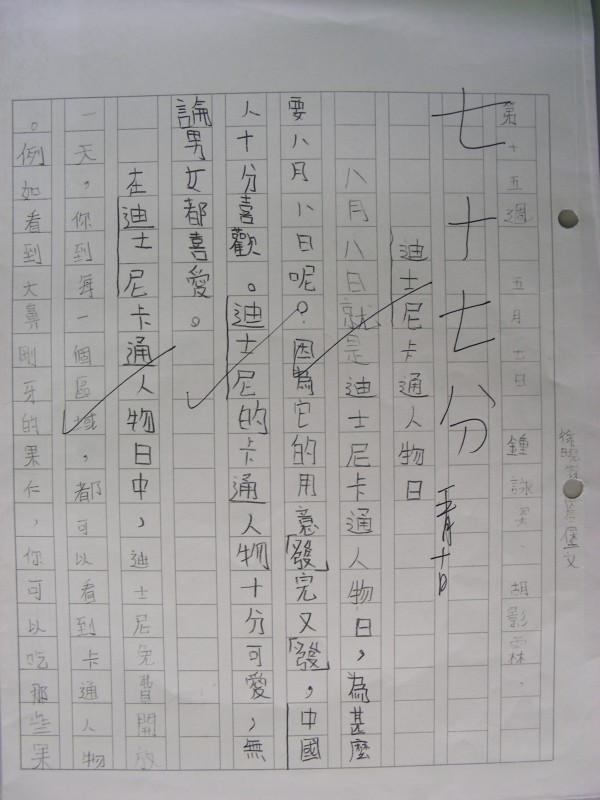 第十五週 五月七日 鍾詠 、胡影霖、
堡文
七十七分
五月十日
迪士尼卡通人物日
八月八日就是迪士尼卡通人物日,為甚麼
要八月八日呢?因為它的用意「發完又發」,中國
人十分喜歡。迪士尼的卡通人物十分可愛,無
論男女都喜愛。
在迪士尼卡通人物日中,迪士尼免費開放
一天,你到每一個區域,都可以看到卡通人物
。例如看到大鼻剛牙的果仁,你可以吃那些果